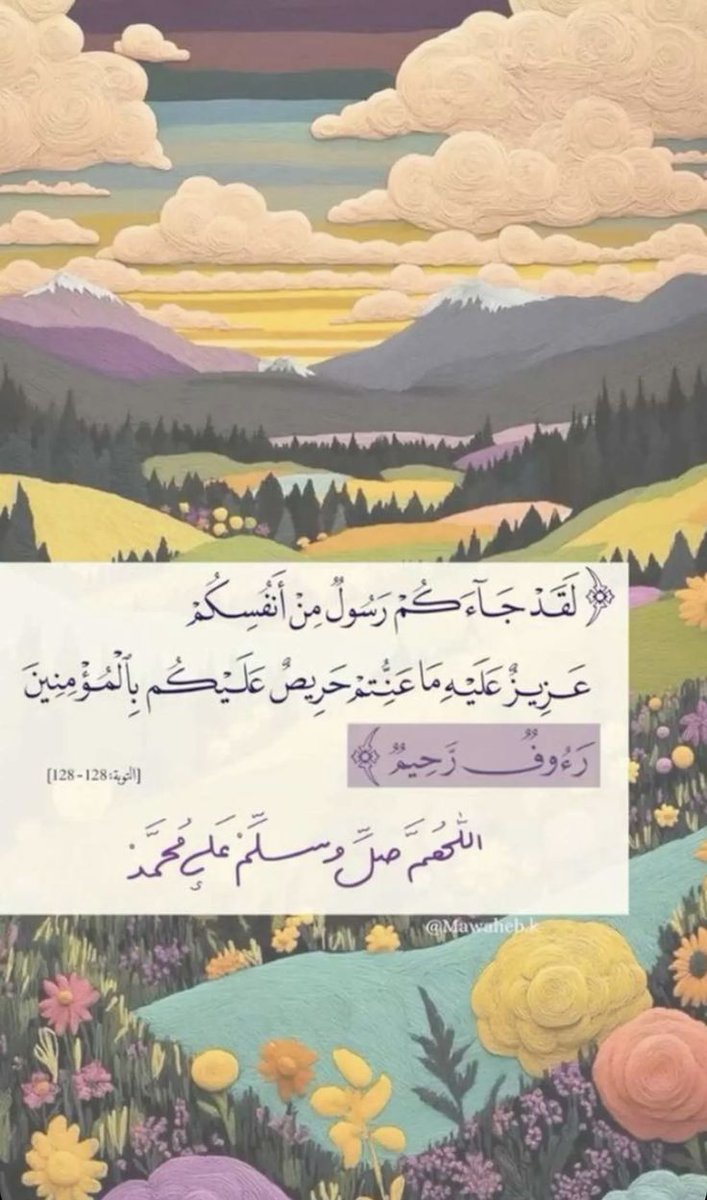 ﴿ لَقَدْ جَآءَكُمْ رَسُولٌ مِنْ أَنْفُسِكُمْ
عَزِيزٌ عَلَيْهِ مَا عَنِتُّمْ حَرِيصٌ عَلَيْكُم بِٱلْمُؤْمِنِينَ
رَءُوفٌ رَّحِيمٌ ﴾
[التوبة: 128 - 128]
اللَّهُمَّ صَلِّ وسلِّمْ عَلى مُحمَّدْ
@Mawaheb.k